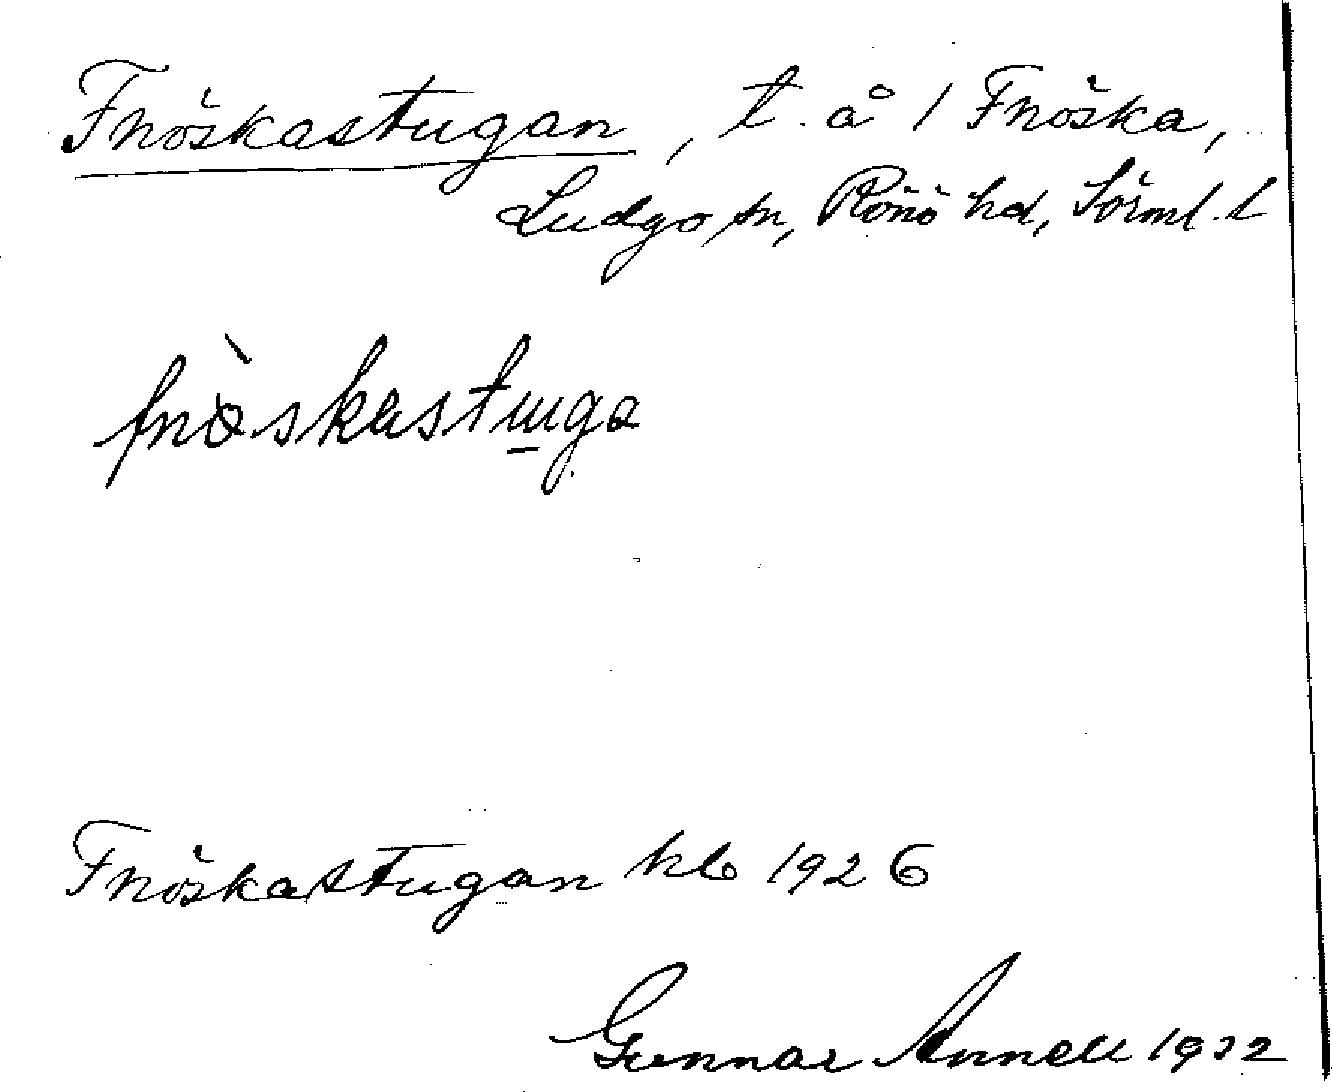 Fnöskastugan, t. å 1 Fnöska,
Ludgo sn, Rönö hd, Sörml. l
fnöskastuga
Fnöskastugan kb 1926
Gunnar Annell 1932